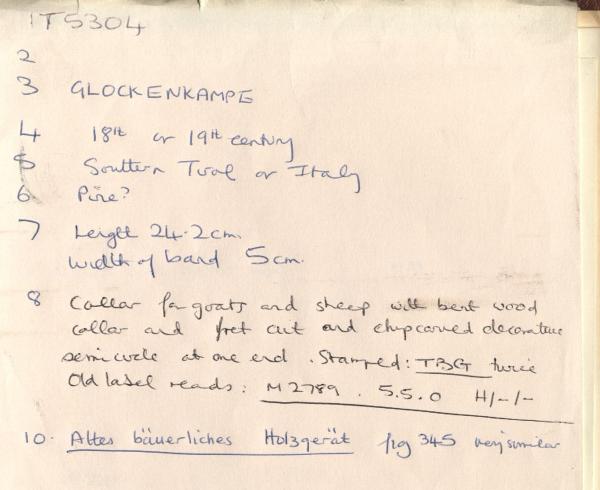 IT5304
2
3 GLOCKENKAMPE
4 18th or 19th century
5 Southern Tirol or Italy
6 Pine?
7 Length 24.2cm.
Width of band 5cm.
8 Collar for goats and sheep with bent wood
collar and fret cut and chipcarved decorative
semicircle at one end. Stamped: TBG twice
Old label reads: M2789. 5.5.0 H/-/-
10. Altes bäuerliches Holzgerät pg 345 very similar